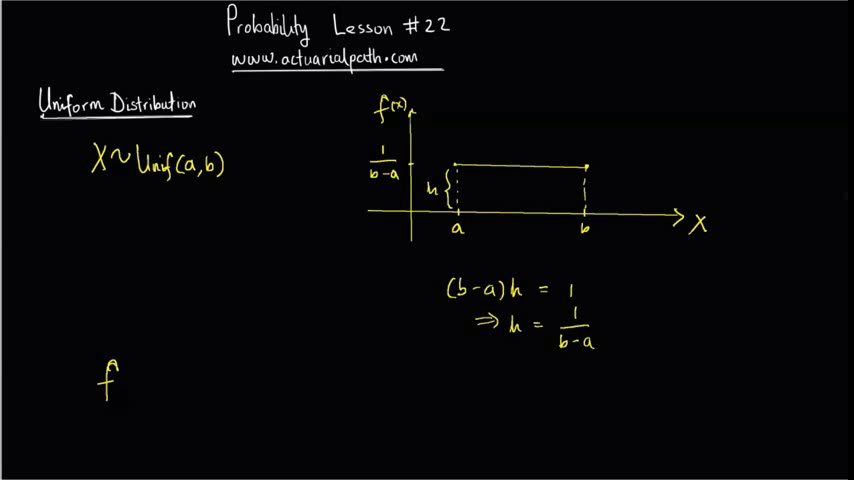 Probability Lesson #22
www.actuarialpath.com
Uniform Distribution
X ~ Unif(a,b)
f(x)
1
b-a
h
a
b
X
(b-a)h = 1
⇒ h = 1
b-a
f